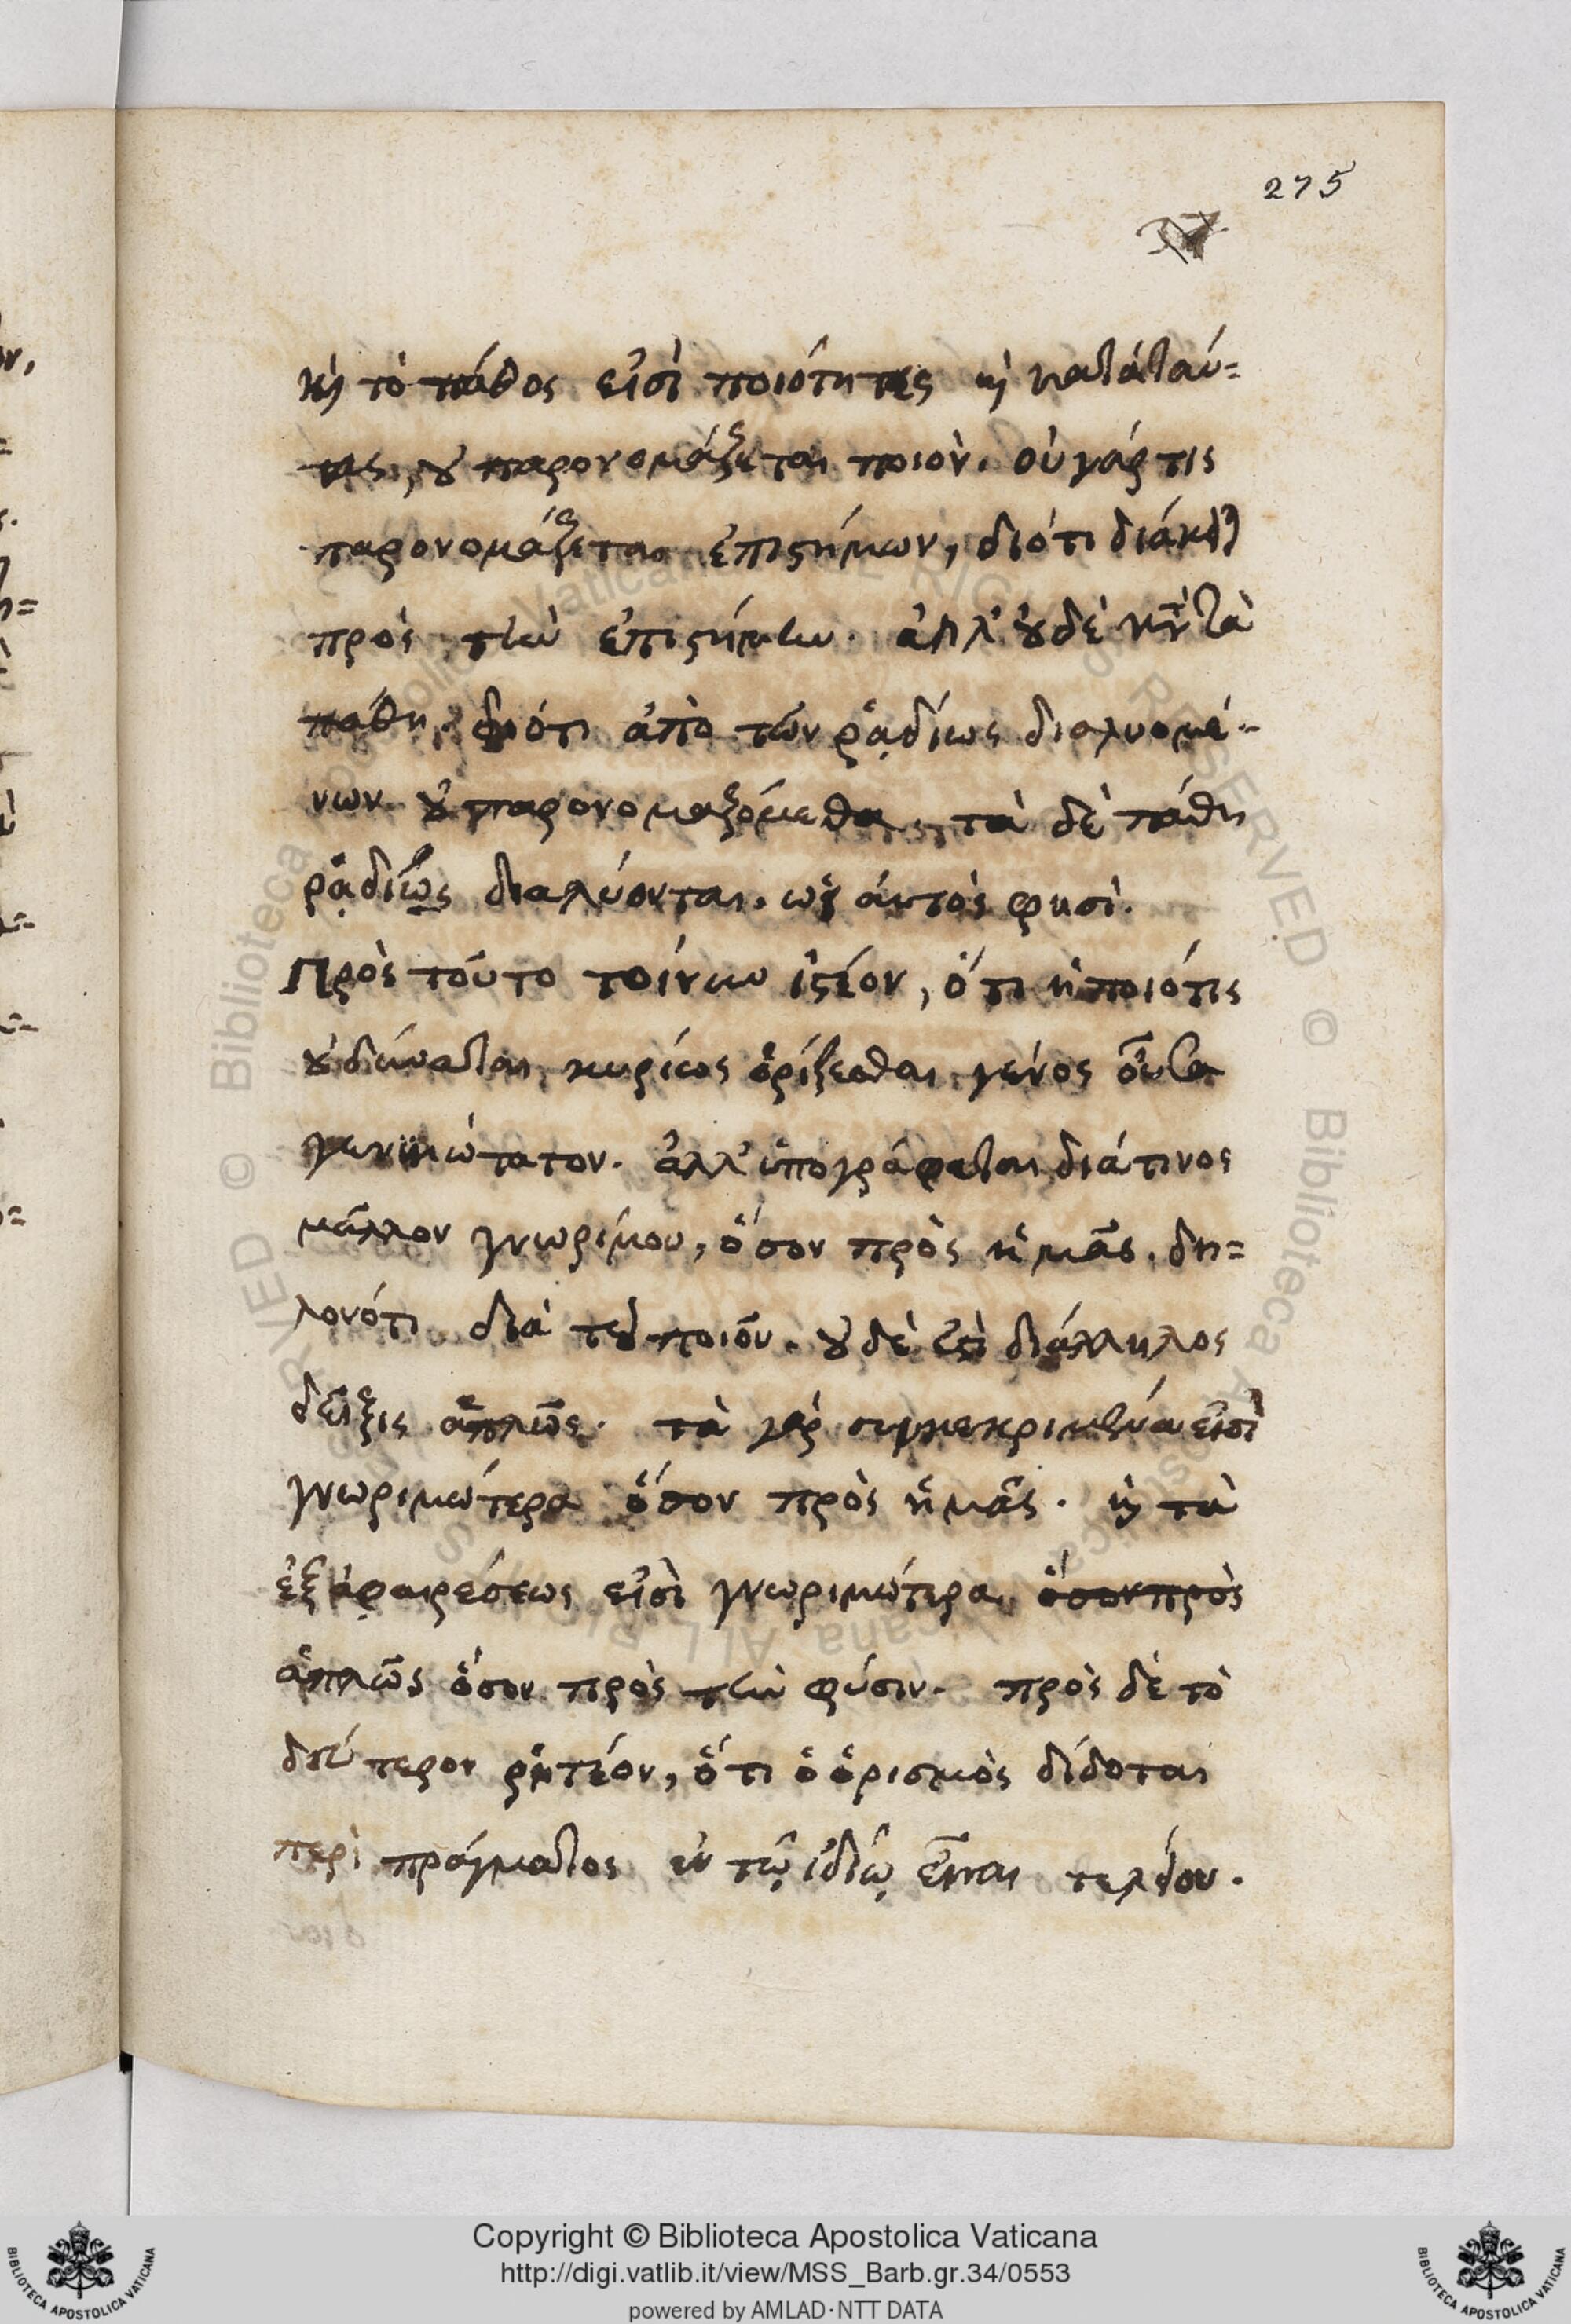 275
καὶ τὸ πάθος εἰσὶ ποιότητες καὶ κατὰ ταύ=
τας, οὐ παρονομάζεται ποιὸν. οὐ γάρ τις
παρονομάζεται ἐπιστήμων, διότι διάκειται
πρὸς τὴν ἐπιστήμην. ἀλλ' οὐδὲ κατὰ τὰ
πάθη, διότι ἀπὸ τῶν ῥᾳδίως διαλυομέ=
νων οὐ παρονομαζόμεθα, τὰ δὲ πάθη
ῥᾳδίως διαλύονται. ὡς ἀυτὸς φησὶ.
Πρὸς τοῦτο τοίνυν ἰστέον, ὅτι ἡ ποιότις
οὐ δύναται κυρίως ὁρίζεσθαι γένος οὖσα
γενικώτατον. ἀλλ' ὑπογράφεται διά τινος
μᾶλλον γνωρίμου, ὅσον πρὸς ἡμᾶς. δη=
λονότι διὰ τοῦ ποιοῦ. οὐδὲ ἐστὶ διάλληλος
δεῖξις ἁπλῶς. τὰ γὰρ συγκεκριμένα εἰσὶ
γνωριμώτερα ὅσον πρὸς ἡμᾶς. καὶ τὰ
ἐξ ἀφαιρέσεως εἰσὶ γνωριμώτερα ὅσον πρὸς
ἁπλῶς ὅσον πρὸς τὴν φύσιν. πρὸς δὲ τὸ
δεύτερον ῥητέον, ὅτι ὁ ὁρισμὸς δίδοται
περὶ πράγματος ἐν τῷ ἰδίῳ εἶναι τελείου.
© Biblioteca Apostolica Vaticana ALL RIGHTS RESERVED
Copyright © Biblioteca Apostolica Vaticana
http://digi.vatlib.it/view/MSS_Barb.gr.34/0553
powered by AMLAD·NTT DATA
BIBLIOTECA APOSTOLICA VATICANA
BIBLIOTECA APOSTOLICA VATICANA